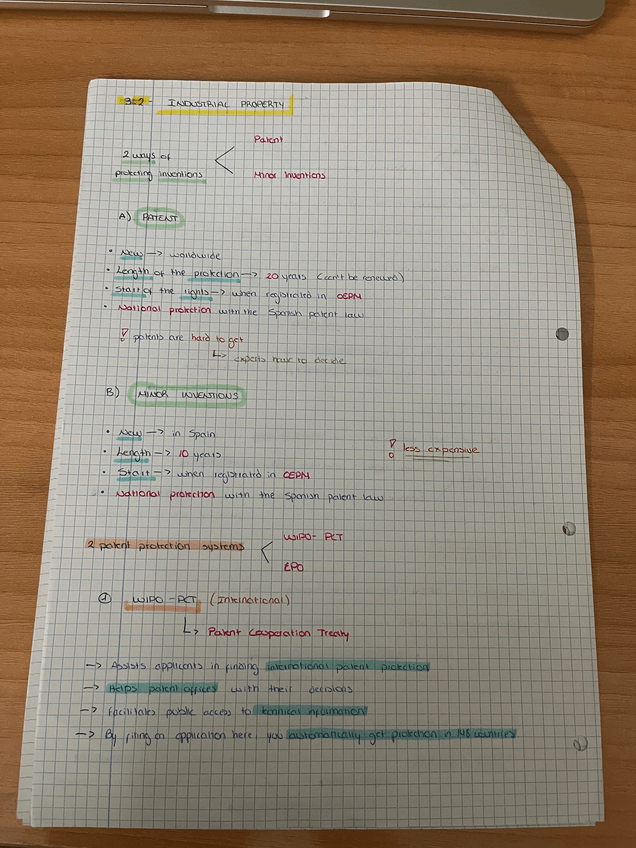 3.2 - INDUSTRIAL PROPERTY
Patent
2 ways of
protecting inventions
Minor Inventions
A) PATENT
• New —> worldwide
• Length of the protection —> 20 years (can't be renewed)
• Start of the rights —> when registrated in OEPM
• National protection with the Spanish patent law
! patents are hard to get
↳ experts have to decide
B) MINOR INVENTIONS
• New —> in Spain
• Length —> 10 years
! less expensive
• Start —> when registrated in OEPM
• National protection with the Spanish patent law
WIPO - PCT
2 patent protection systems
EPO
① WIPO - PCT (International)
↳ Patent Cooperation Treaty
—> Assists applicants in finding international patent protection
—> Helps patent offices with their decisions
—> Facilitates public access to technical information
—> By filing an application here, you automatically get protection in 148 countries